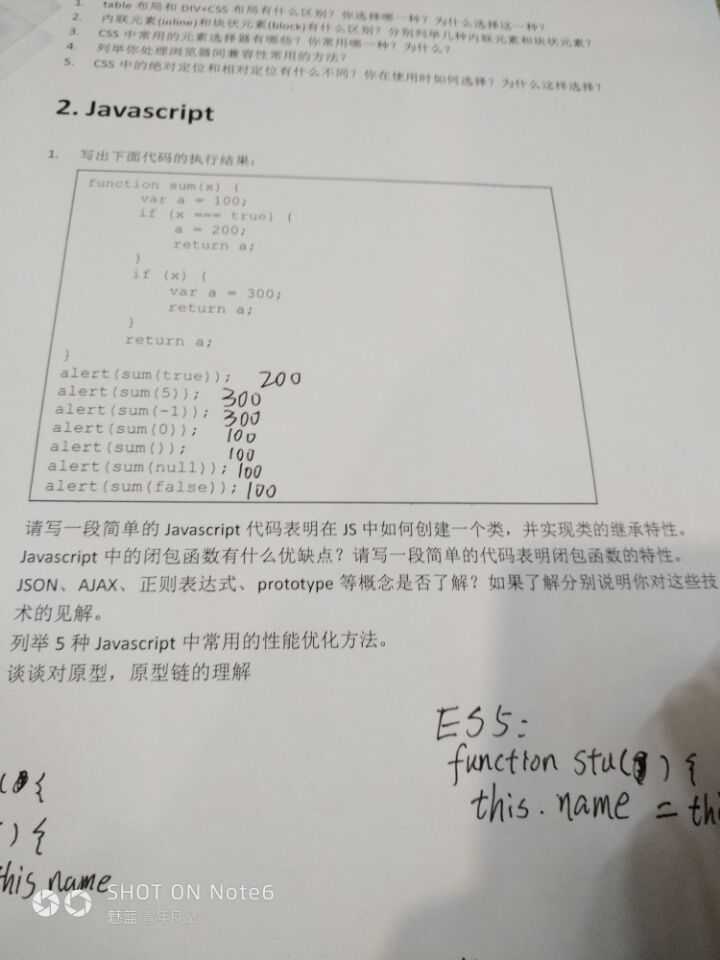 1. table 布局和 DIV+CSS 布局有什么区别？你选择哪一种？为什么选择这一种？
2. 内联元素(inline)和块状元素(block)有什么区别？分别列举几种内联元素和块状元素？
3. CSS 中常用的元素选择器有哪些？你常用哪一种？为什么？
4. 列举你处理浏览器间兼容性常用的方法？
5. CSS 中的绝对定位和相对定位有什么不同？你在使用时如何选择？为什么这样选择？
2. Javascript
1. 写出下面代码的执行结果：
function sum(x) {
var a = 100;
if (x === true) {
a = 200;
return a;
}
if (x) {
var a = 300;
return a;
}
return a;
}
alert(sum(true)); 200
alert(sum(5)); 300
alert(sum(-1)); 300
alert(sum(0)); 100
alert(sum()); 100
alert(sum(null)); 100
alert(sum(false)); 100
请写一段简单的 Javascript 代码表明在 JS 中如何创建一个类，并实现类的继承特性。
Javascript 中的闭包函数有什么优缺点？请写一段简单的代码表明闭包函数的特性。
JSON、AJAX、正则表达式、prototype 等概念是否了解？如果了解分别说明你对这些技
术的见解。
列举 5 种 Javascript 中常用的性能优化方法。
谈谈对原型，原型链的理解
ES5:
function stu( ) {
this.name = thi
( {
) {
this name
SHOT ON Note6
魅蓝 青年良品